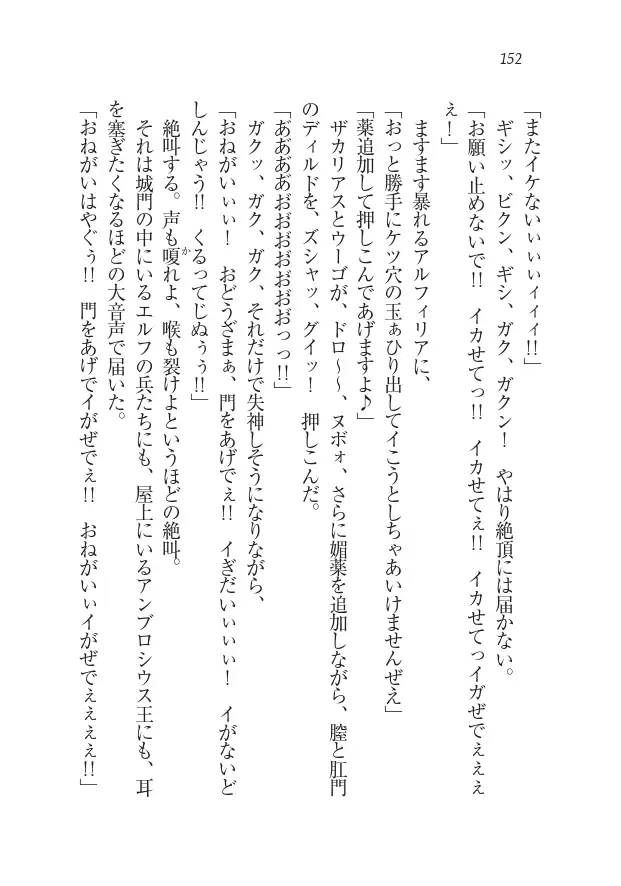 152
「またイケないぃぃぃィィィ!!」
ギシッ、ビクン、ギシ、ガク、ガクン！　やはり絶頂には届かない。
「お願い止めないで!!　イカせてっ!!　イカせてぇ!!　イカせてっイガぜでぇぇぇ
ぇ！」
ますます暴れるアルフィリアに、
「おっと勝手にケツ穴の玉ぁひり出してイこうとしちゃあいけませんぜえ」
「薬追加して押しこんであげますよ♪」
ザカリアスとウーゴが、ドロ～～、ヌボォ、さらに媚薬を追加しながら、膣と肛門
のディルドを、ズシャッ、グイッ！　押しこんだ。
「あ゛あ゛あ゛あ゛お゛お゛お゛お゛お゛お゛お゛っっ!!」
ガクッ、ガク、ガク、それだけで失神しそうになりながら、
「おねがいぃぃ！　おどうざまぁ、門をあげでぇ!!　イぎだいぃぃぃぃ！　イがないど
しんじゃう!!　くるってじぬぅぅ!!」
絶叫する。声も嗄れよ、喉も裂けよというほどの絶叫。
か
それは城門の中にいるエルフの兵たちにも、屋上にいるアンブロシウス王にも、耳
を塞ぎたくなるほどの大音声で届いた。
「おねがいはやぐぅ!!　門をあげでイがぜでぇ!!　おねがいぃイがぜでぇぇぇぇ!!」